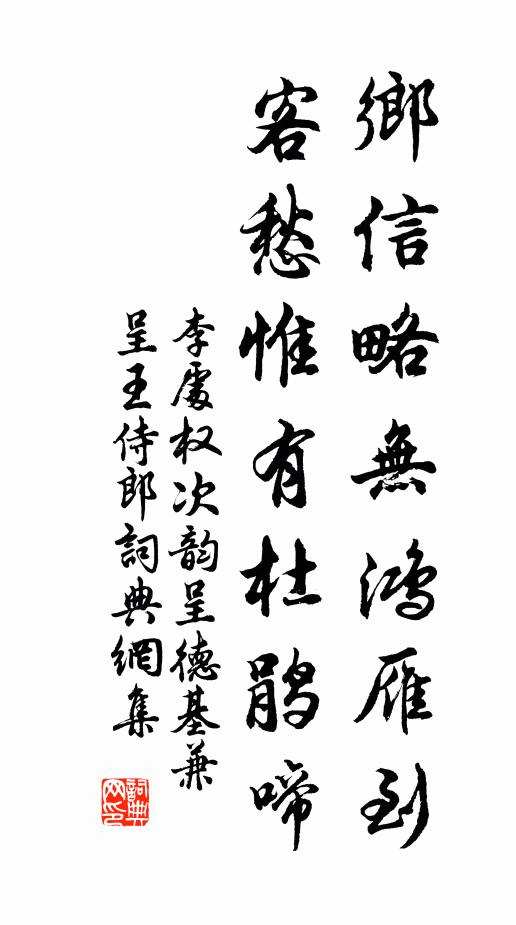 鄉信略無鴻雁到
客愁惟有杜鵑啼
李處权次韵呈德基兼
呈王侍郎詞典網集
詞典網印